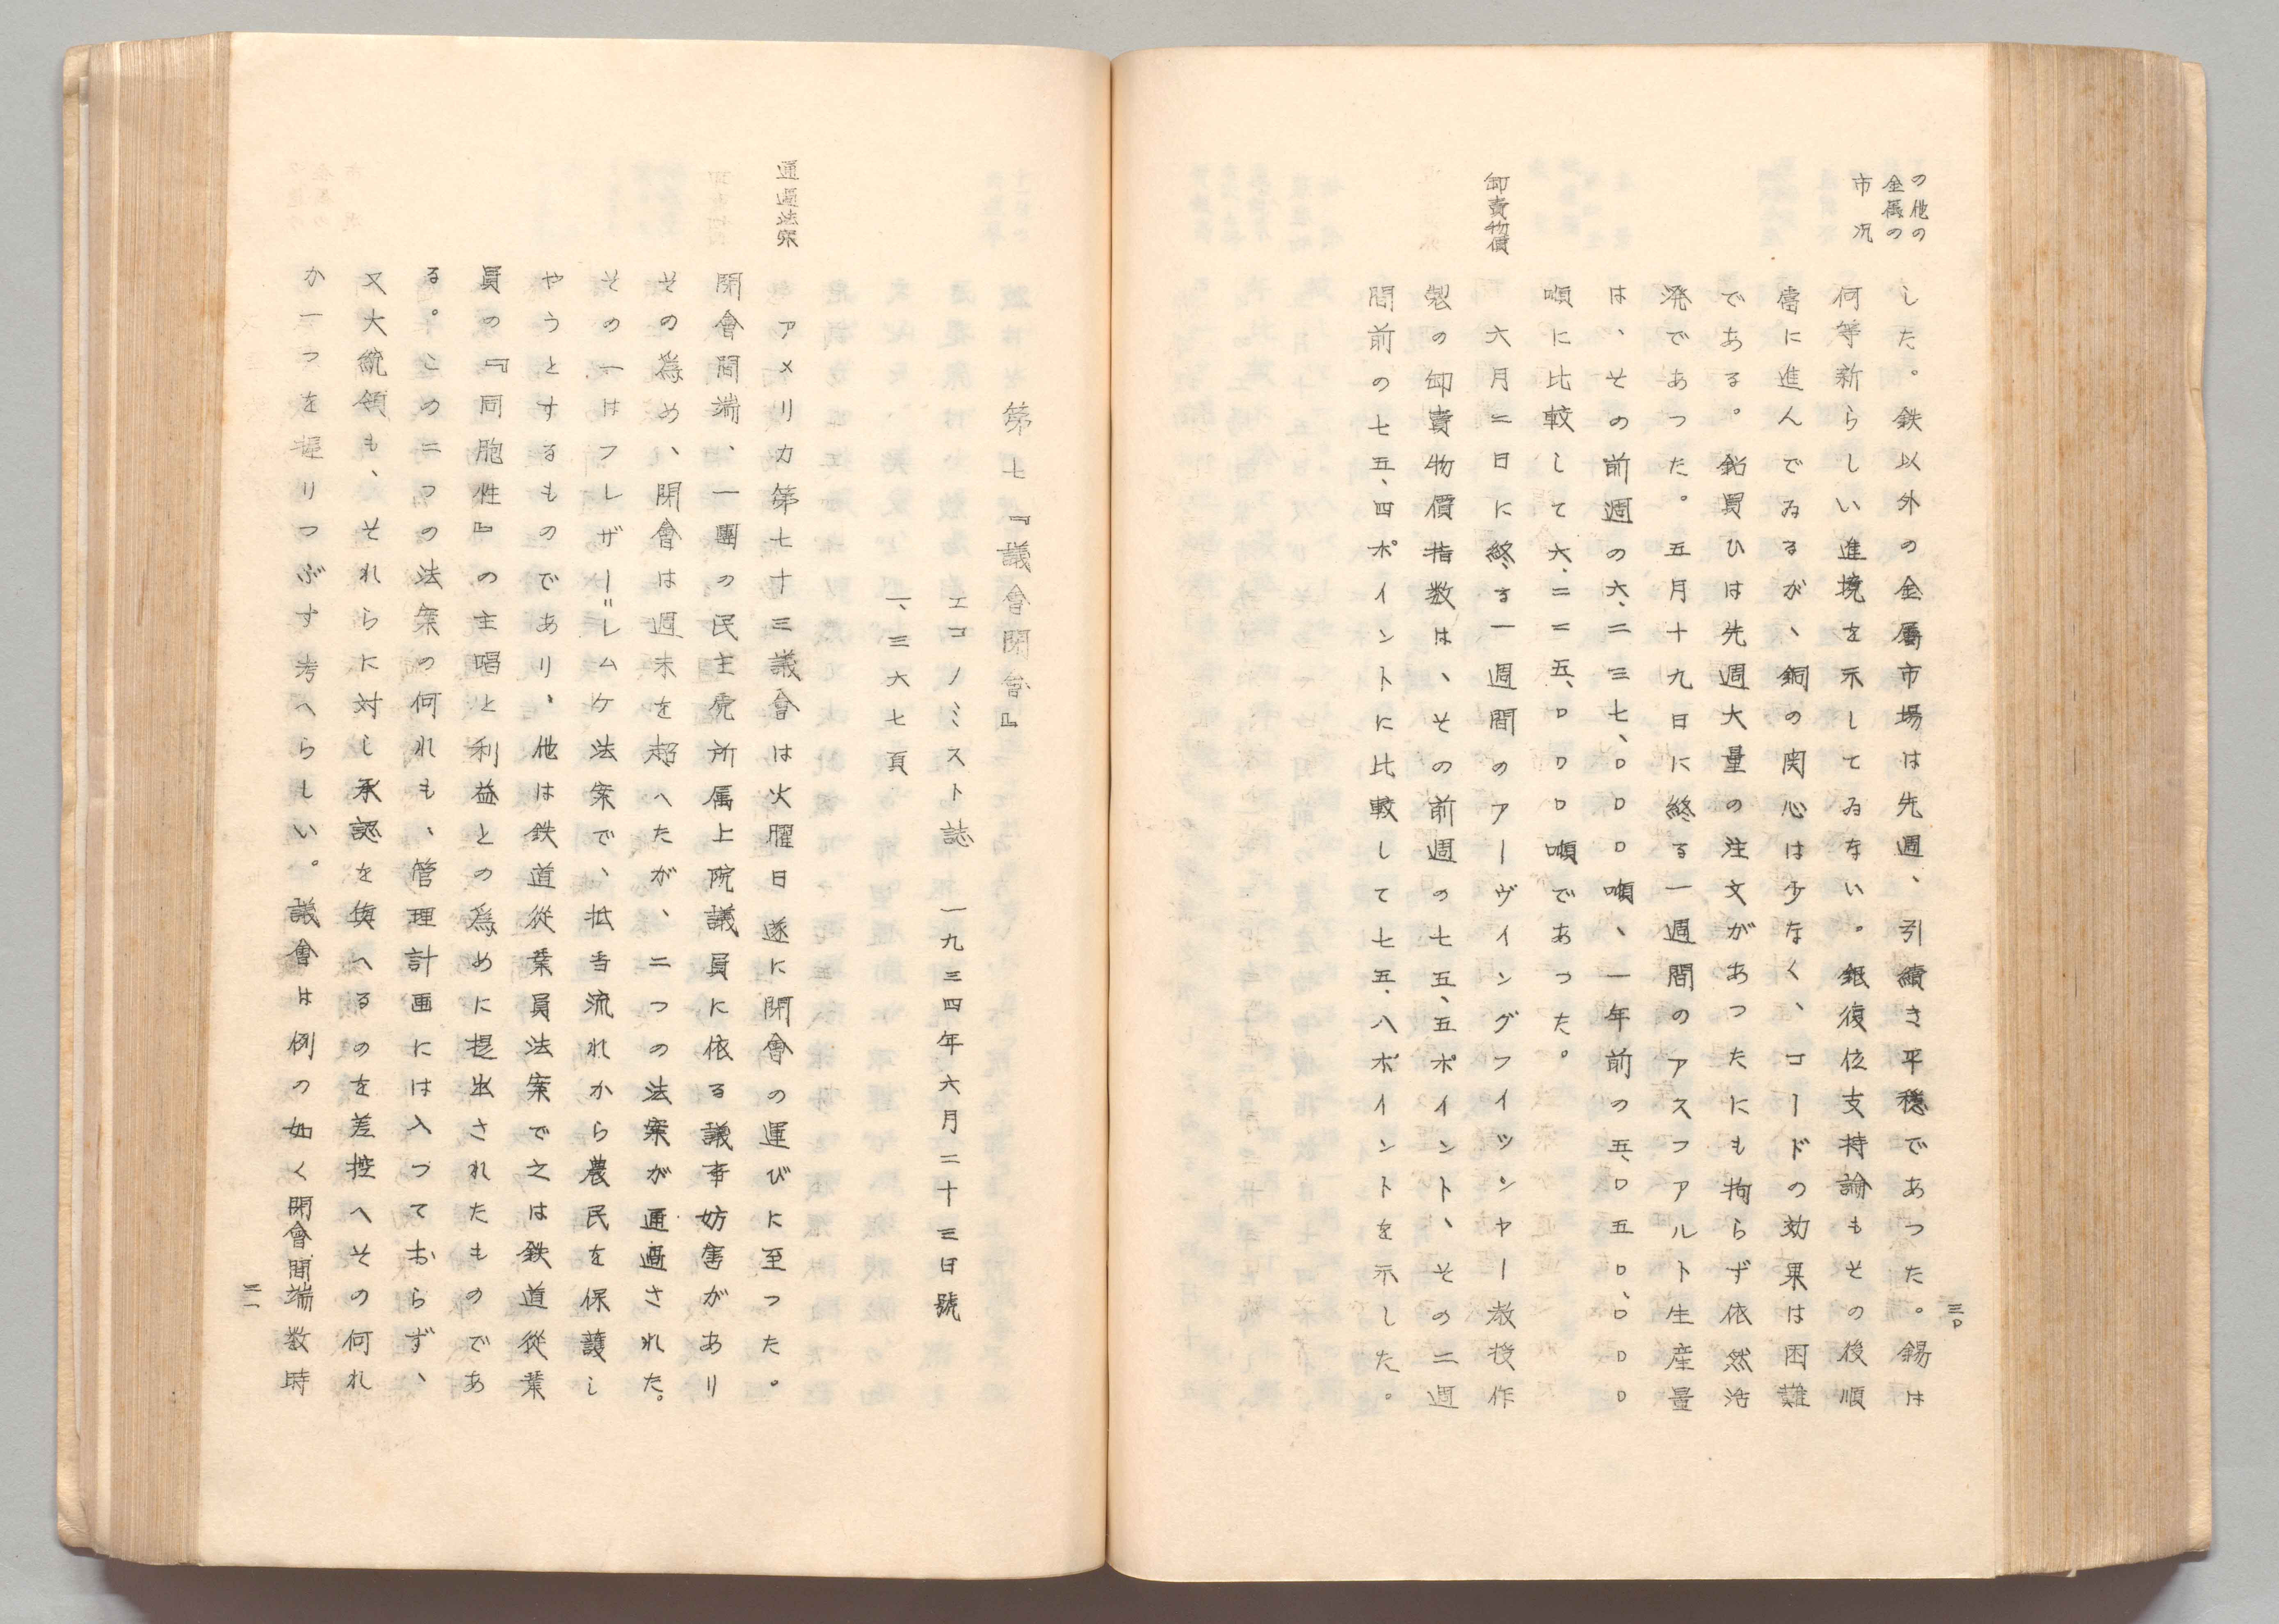 の他の
金属の
市況
三〇
した。鉄以外の金属市場は先週、引續き平穏であつた。錫は
何等新らしい進境を示してゐない。銀復位支持論もその後順
當に進んでゐるが、銅の関心は少なく、コードの効果は困難
である。鉛買ひは先週大量の注文があつたにも拘らず依然活
溌であつた。五月十九日に終る一週間のアスフアルト生産量
は、その前週の六、二三七、〇〇〇噸、一年前の五、〇五〇、〇〇〇
噸に比較して六、二二五、〇〇〇噸であつた。
卸賣物價
六月二日に終る一週間のアーヴイングフイツシヤー教授作
製の卸賣物價指数は、その前週の七五、五ポイント、その二週
間前の七五、四ポイントに比較して七五、八ポイントを示した。
第七『議會閉會』
エコノミスト誌 一九三四年六月二十三日號
一、三六七頁
通過法案
アメリカ第七十三議會は火曜日遂に閉會の運びに至つた。
閉會間端、一團の民主党所属上院議員に依る議事妨害があり
その為め、閉會は週末を超へたが、二つの法案が通過された。
その一はフレザー＝レムケ法案で、抵当流れから農民を保護し
やうとするものであり、他は鉄道従業員法案で之は鉄道従業
員の『同胞性』の主唱と利益との為めに提出されたものであ
る。この二つの法案の何れも、管理計画には入つておらず、
又大統領も、それらに対し承認を與へるのを差控へその何れ
か一つを握りつぶす考へらしい。議會は例の如く閉會間端数時
三一